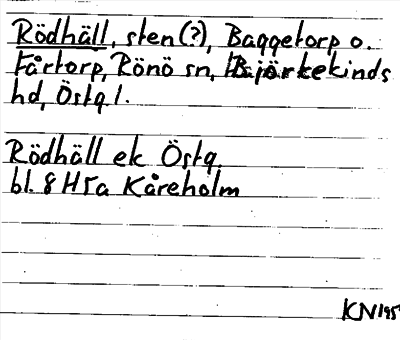 Rödhäll, sten(?), Baggetorp o.
Fårtorp, Rönö sn, Björkekinds
hd, Östg l.
Rödhäll ek Östg.
bl. 8H5a Kåreholm